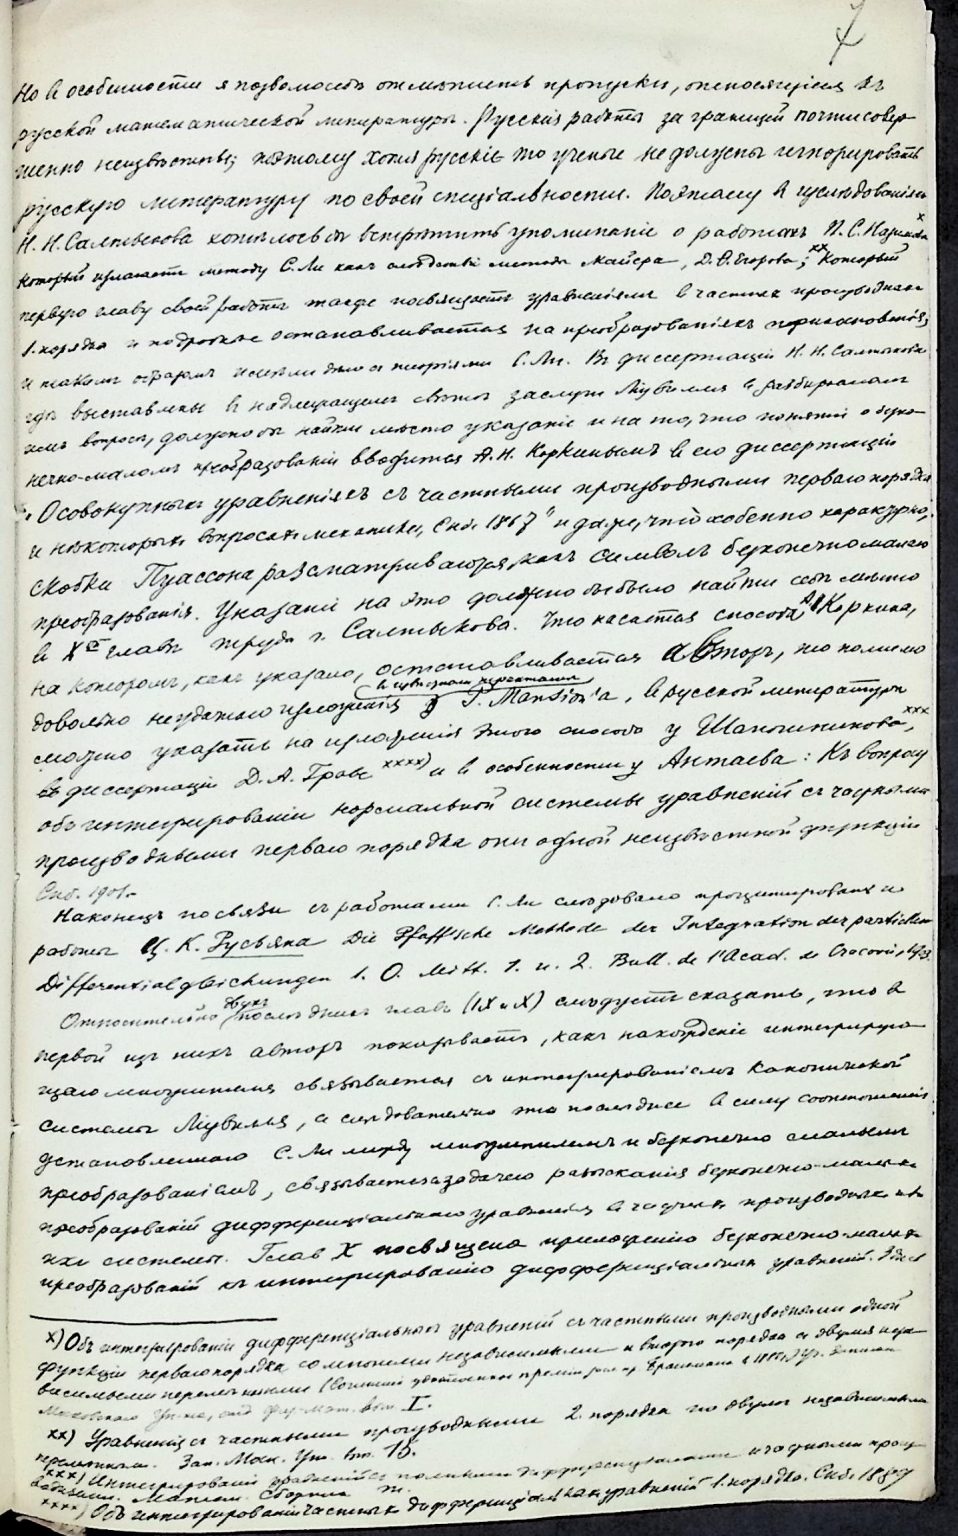 7
Но въ особенности я позволю себѣ отмѣтить пропуски, относящіеся къ
русской математической литературѣ. Русскія работы за границей почти совер-
шенно неизвѣстны; поэтому хотя русскіе то ученые не должны игнорировать
русскую литературу по своей спеціальности. Поэтому въ изслѣдованіи
Н. Н. Салтыкова хотѣлось бы встрѣтить упоминаніе о работахъ П. С. Назимова x
который излагаетъ методу С. Ли какъ слѣдствіе метода Майера, Д. Ѳ. Егорова; xx который
первую главу своей работы также посвящаетъ уравненіямъ въ частныхъ производныхъ
1. порядка и подробнѣе останавливается на преобразованіяхъ прикосновенія,
и такимъ образомъ теоріями С. Ли. Въ диссертаціи Н. Н. Салтыкова
гдѣ выставлены въ надлежащемъ свѣтѣ заслуги Ліувилля въ разбираемомъ
имъ вопросѣ, должно бы найти мѣсто указаніе и на то, что понятіе о безко-
нечно-маломъ преобразованіи вводится А. Н. Коркинымъ въ его диссертаціи
„О совокупныхъ уравненіяхъ съ частными производными перваго порядка
и нѣкоторыхъ вопросахъ механики, Спб. 1867" и даже, что особенно характерно,
скобки Пуассона разсматриваются какъ символъ безконечно малаго
преобразованія. Указаніе на это должно бы было найти себѣ мѣсто
въ Xой главѣ труда г. Салтыкова. Что касается способа А. Н. Коркина,
на которомъ, какъ указано, останавливается авторъ, то помимо
довольно неудачнаго изложенія въ P. Mansion'a, въ русской литературѣ
можно указать на изложенія этого способа у Шапошникова, xxx
въ диссертаціи Д. А. Граве xxxx) и въ особенности у Антаева: Къ вопросу
объ интегрированіи нормальной системы уравненій съ частными
производными перваго порядка одной неизвѣстной функціи
Спб. 1901.
Наконецъ по связи съ работами С. Ли слѣдовало процитировать и
работы Ц. К. Русьяна Die Pfaff'sche Methode der Integration der partiellen
Differentialgleichungen 1. O. Mitt. 1. u. 2. Bull. de l'Acad. de Cracovie,
Относительно двухъ послѣднихъ главъ (IX и X) слѣдуетъ сказать, что въ
первой изъ нихъ авторъ показываетъ, какъ нахожденіе интегрирую-
щаго множителя связывается съ интегрированіемъ канонической
системы Ліувилля, а слѣдовательно это послѣднее въ силу соотношенія
установленнаго С. Ли между множителемъ и безконечно малымъ
преобразованіемъ, связывается задачею разысканія безконечно-малыхъ
преобразованій дифференціальнаго уравненія въ частныхъ производныхъ или
ихъ системы. Глава X посвящена приложенію безконечно-малыхъ
преобразованій къ интегрированію дифференціальныхъ уравненій. Здѣсь
x) Объ интегрированіи дифференціальныхъ уравненій съ частными производными одной
функціи перваго порядка со многими независимыми и второго порядка съ двумя неза-
висимыми перемѣнными
Московскаго Ун-та, отд. физ-мат. вып. I.
xx) Уравненія съ частными производными 2. порядка по двумъ независимымъ
перемѣннымъ. Зап. Моск. Ун. вып. 15.
xxx) Интегрированіе уравненій съ полными дифференціалами и частными произ-
водными. Матем. Сборникъ т.
xxxx) Объ интегрированіи частныхъ дифференціальныхъ уравненій 1. порядка. Спб. 1889